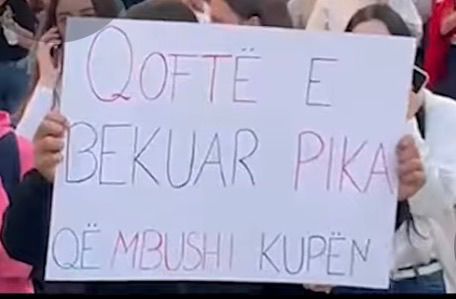 QOFTË E
BEKUAR PIKA
QË MBUSHI KUPËN